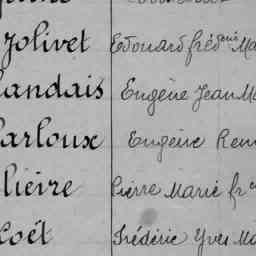 Jolivet Edouard fréd
andais Eugène Jean
arloux Eugène
lieire Pierre Marie fr
oët Frédéric Yves